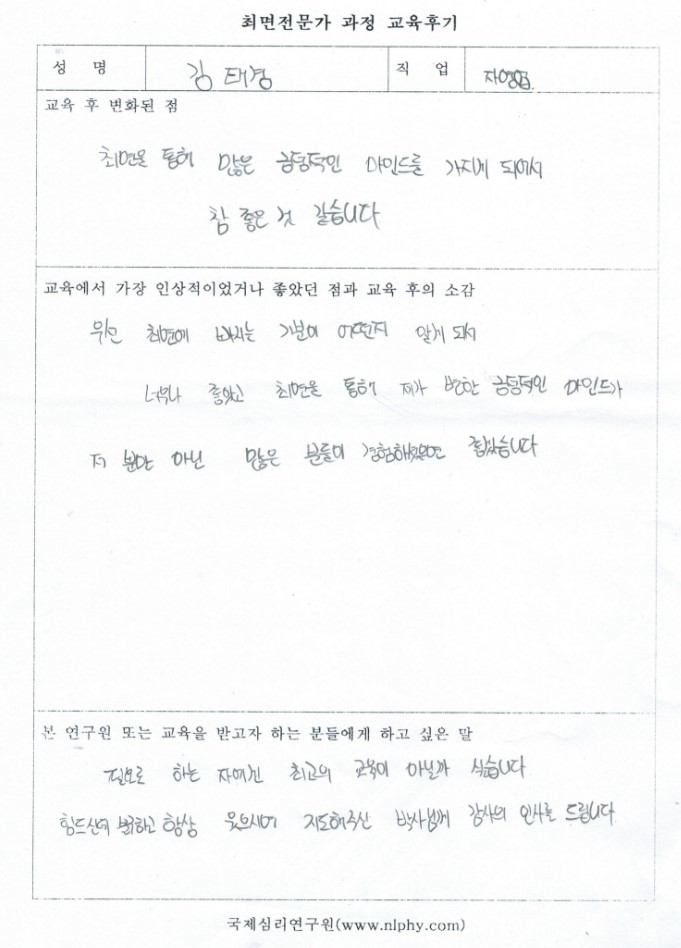 최면전문가 과정 교육후기
성 명 김태경 직 업 자영업.
교육 후 변화된 점
최면을 통해 많은 긍정적인 마인드를 가지게 되어서
참 좋은 것 같습니다
교육에서 가장 인상적이었거나 좋았던 점과 교육 후의 소감
최면에 빠지는 기분이 어떤지 알게 되서
너무나 좋았고 최면을 통해 제가 변한 긍정적인 마인드가
저 뿐만 아닌 많은 분들이 경험해봤으면 좋겠습니다
본 연구원 또는 교육을 받고자 하는 분들에게 하고 싶은 말
필요로 하는 자에겐 최고의 교육이 아닐까 싶습니다
힘드신데 불구하고 항상 웃으시며 지도해주신 박사님께 감사의 인사를 드립니다
국제심리연구원(www.nlphy.com)